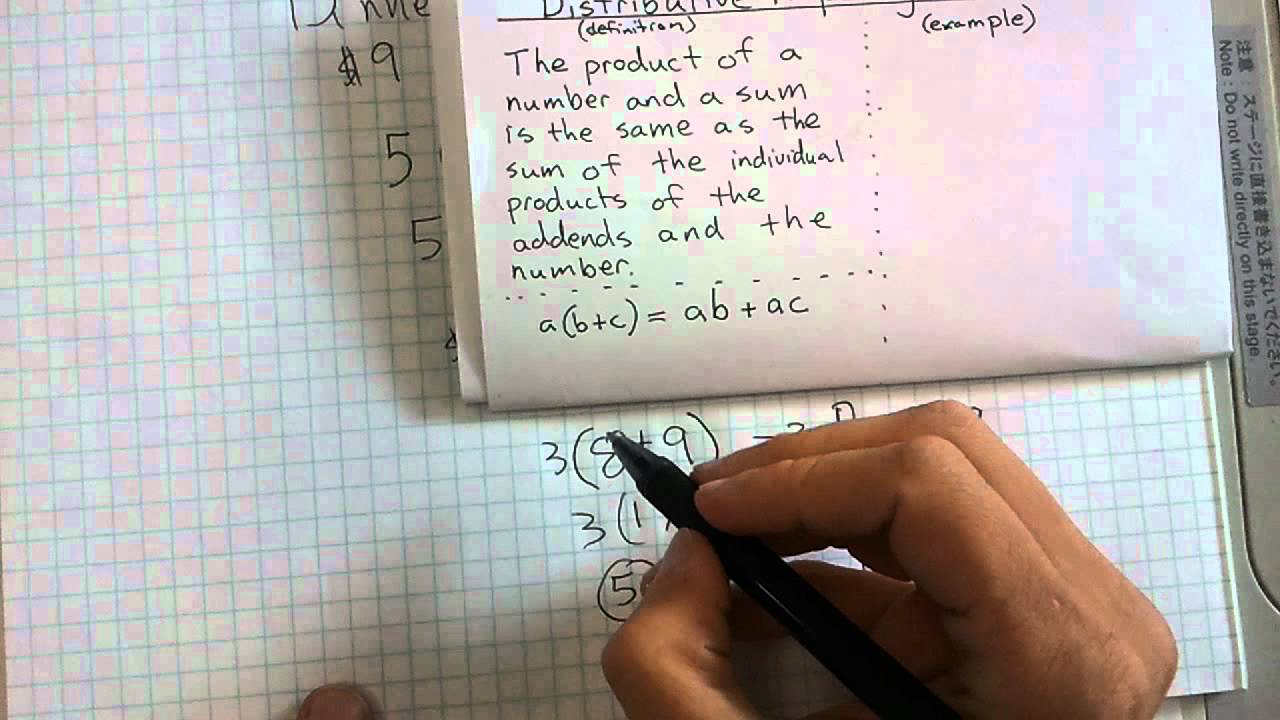 Distributive
(definition)
(example)
The product of a
number and a sum
is the same as the
sum of the individual
products of the
addends and the
number.
a(b+c) = ab + ac
$9
5
5
3(8+9)
3(1
5
注意 ステージに直接書き込まないでください。
Note : Do not write directly on this stage.